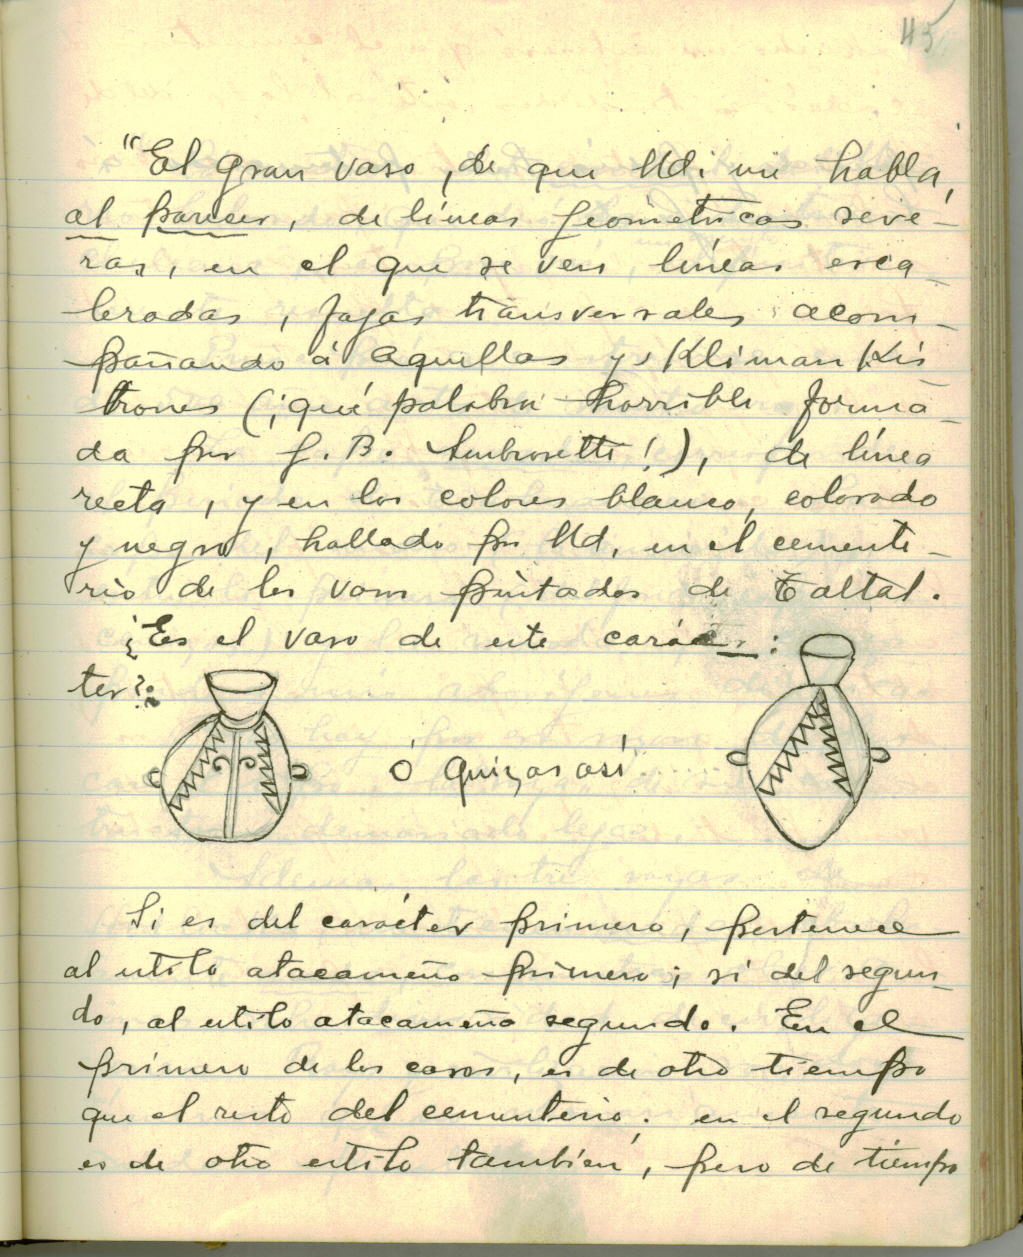 45
"El gran vaso, de que Ud. me habla,
al parecer, de líneas geométricas seve-
ras, en el que se ven, líneas esca-
leradas, fajas transversales acom-
pañando á aquellas y, Kliman Kis
trones (¡qué palabra horrible forma-
da por J. B. Ambrosetti!), de línea
recta, y en los colores blanco, colorado
y negro, hallado por Ud, en el cemente-
rio de los vasos pintados de Taltal.
¿Es el vaso de este carác-
ter?
ó quizas así.......
Si es del carácter primero, pertenece
al estilo atacameño primero; si del segun-
do, al estilo atacameño segundo. En el
primero de los casos, es de otro tiempo
que el resto del cementerio; en el segundo
es de otro estilo tambien, pero de tiempo